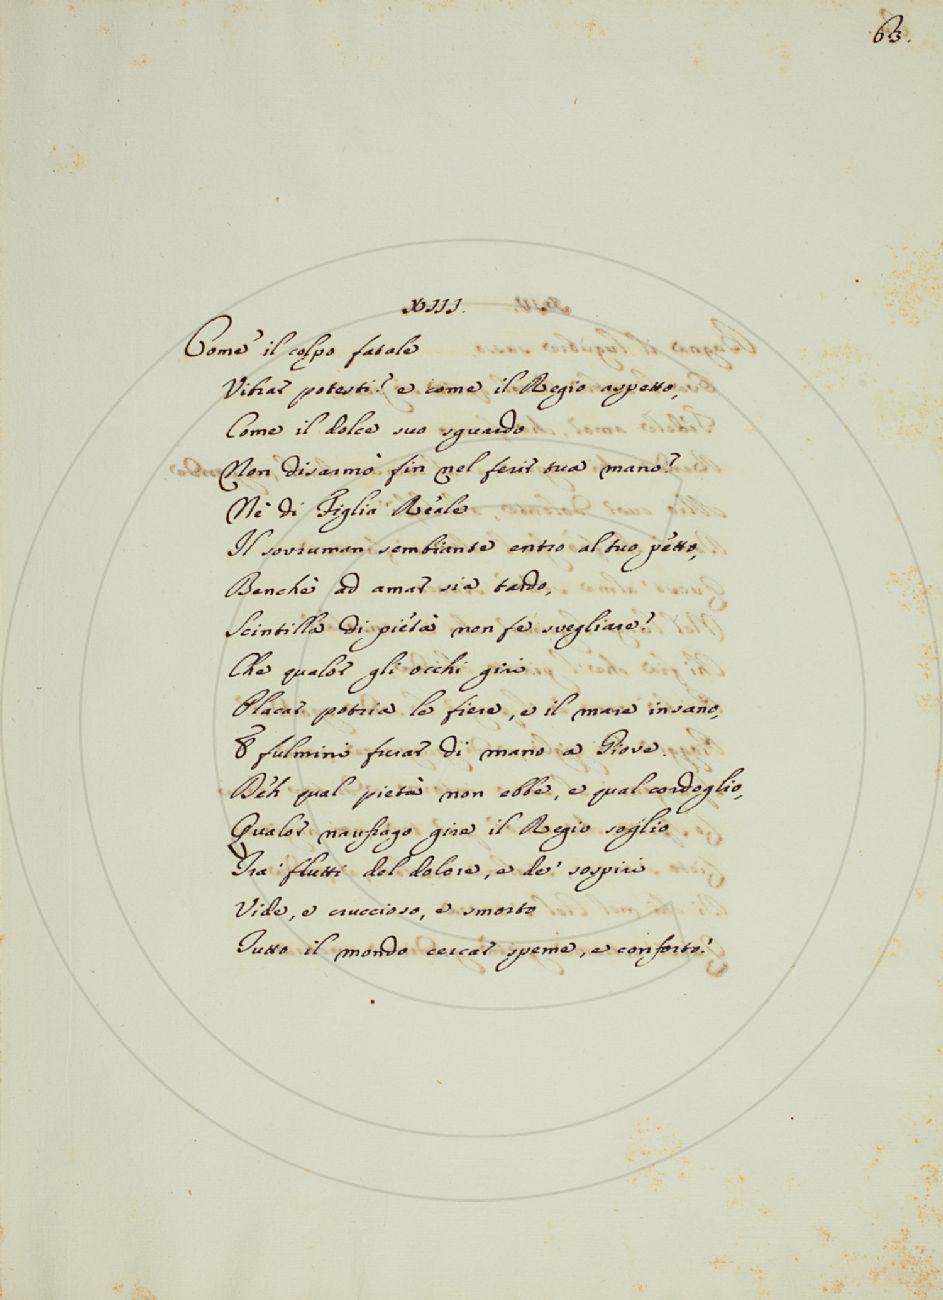 63.
XIII.
Come il colpo fatale
Vibrar potesti? e come il Regio aspetto,
Come il dolce suo sguardo
Non disarmò fin nel ferir tua mano?
Nè di Figlia Reale
Il sovruman sembiante entro al tuo petto,
Benchè ad amar sia tardo,
Scintilla di pietà non fe svegliare?
Che qualor gli occhi gira
Placar potria le fiere, e il mare insano,
E fulmini furar di mano a Giove.
Deh qual pietà non ebbe, e qual cordoglio,
Qualor naufrago gire il Regio soglio
Tra' flutti del dolore, e de' sospiri
Vide, e cruccioso, e smorto
Tutto il mondo cercar speme, e conforto!